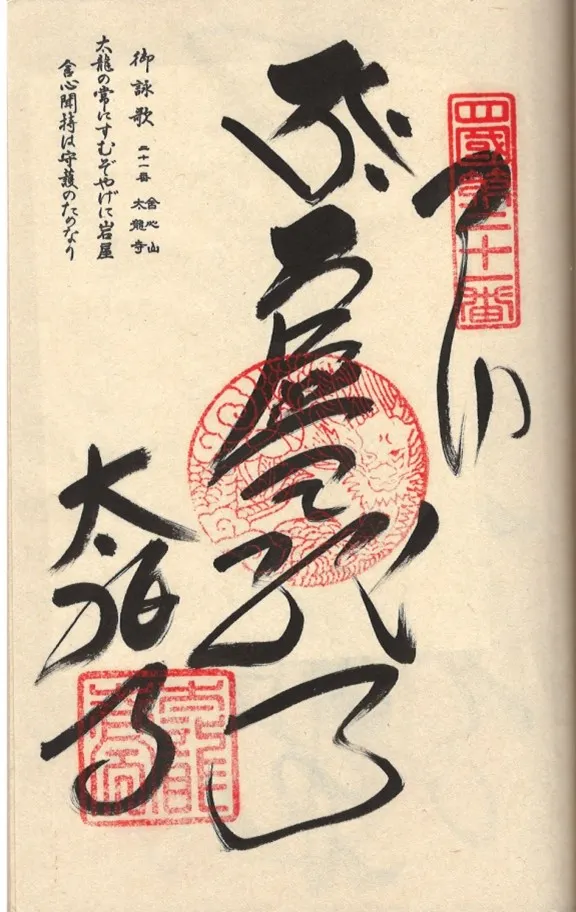 四國第二十一番
虚空蔵
太龍寺
御詠歌 二十一番 舎心山 太龍寺
太龍の常にすむぞやげに岩屋
舎心聞持は守護のためなり